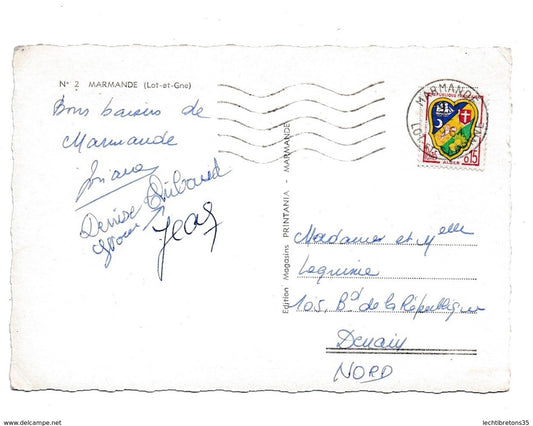 N° 2 MARMANDE (Lot-et-Gne)
Bons baisers de
Marmande
Denise
Jean
Edition Magasins PRINTANIA - MARMANDE
MARMANDE
LOT-ET-GARONNE
REPUBLIQUE FRANÇAISE
0,15
ALGER
Mesdames et Melle
105, Bd de la République
Denain
NORD
www.delcampe.net
lechtibretons35